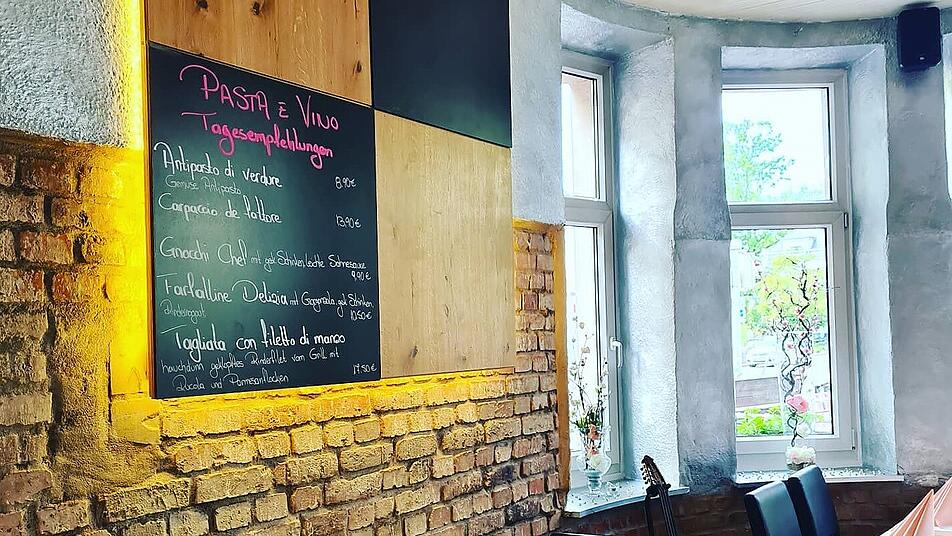 PASTA E VINO
Tagesempfehlungen
Antipasto di verdure 8.90€
Gemüse Antipasto
Carpaccio de fattore 13,90€
Gnocchi Chef mit gek Schinken, Sahnesauce
9,90€
Farfalline Delizia mit Gogonzola, gek Schinken,
10.50€
Tagliata con filetto di manzo
hauchdünn geklopftes Rinderfilet vom Grill mit 17.50€
Rucola und Parmesanflocken